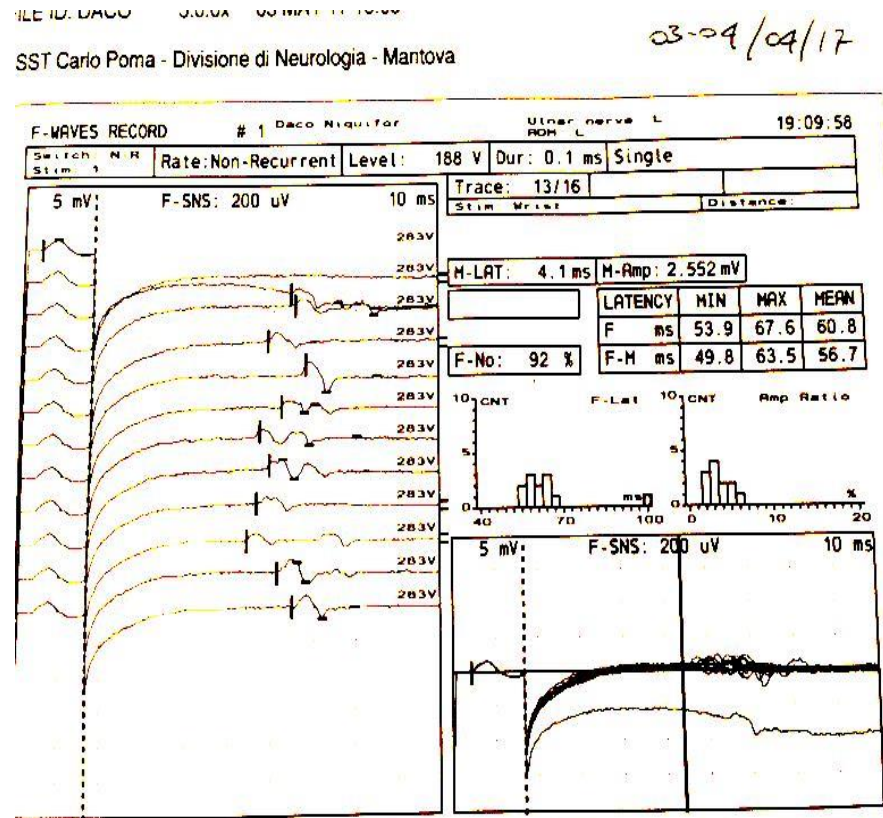 03-04/04/17
SST Carlo Poma - Divisione di Neurologia - Mantova
F-WAVES RECORD # 1 Daco Niquifor Ulnar nerve L 19:09:58
ADM L
Switch N R Rate:Non-Recurrent Level: 188 V Dur: 0.1 ms Single
Stim 1
Trace: 13/16
Stim Wrist Distance:
5 mV F-SNS: 200 uV 10 ms
283V
283V
283V
283V
283V
283V
283V
283V
283V
283V
283V
283V
M-LAT: 4.1 ms M-Amp: 2.552 mV
LATENCY MIN MAX MEAN
F ms 53.9 67.6 60.8
F-No: 92 % F-M ms 49.8 63.5 56.7
10 CNT F-Lat 10 CNT Amp Ratio
5 5
0 ms 0 %
40 70 100 0 10 20
5 mV F-SNS: 200 uV 10 ms